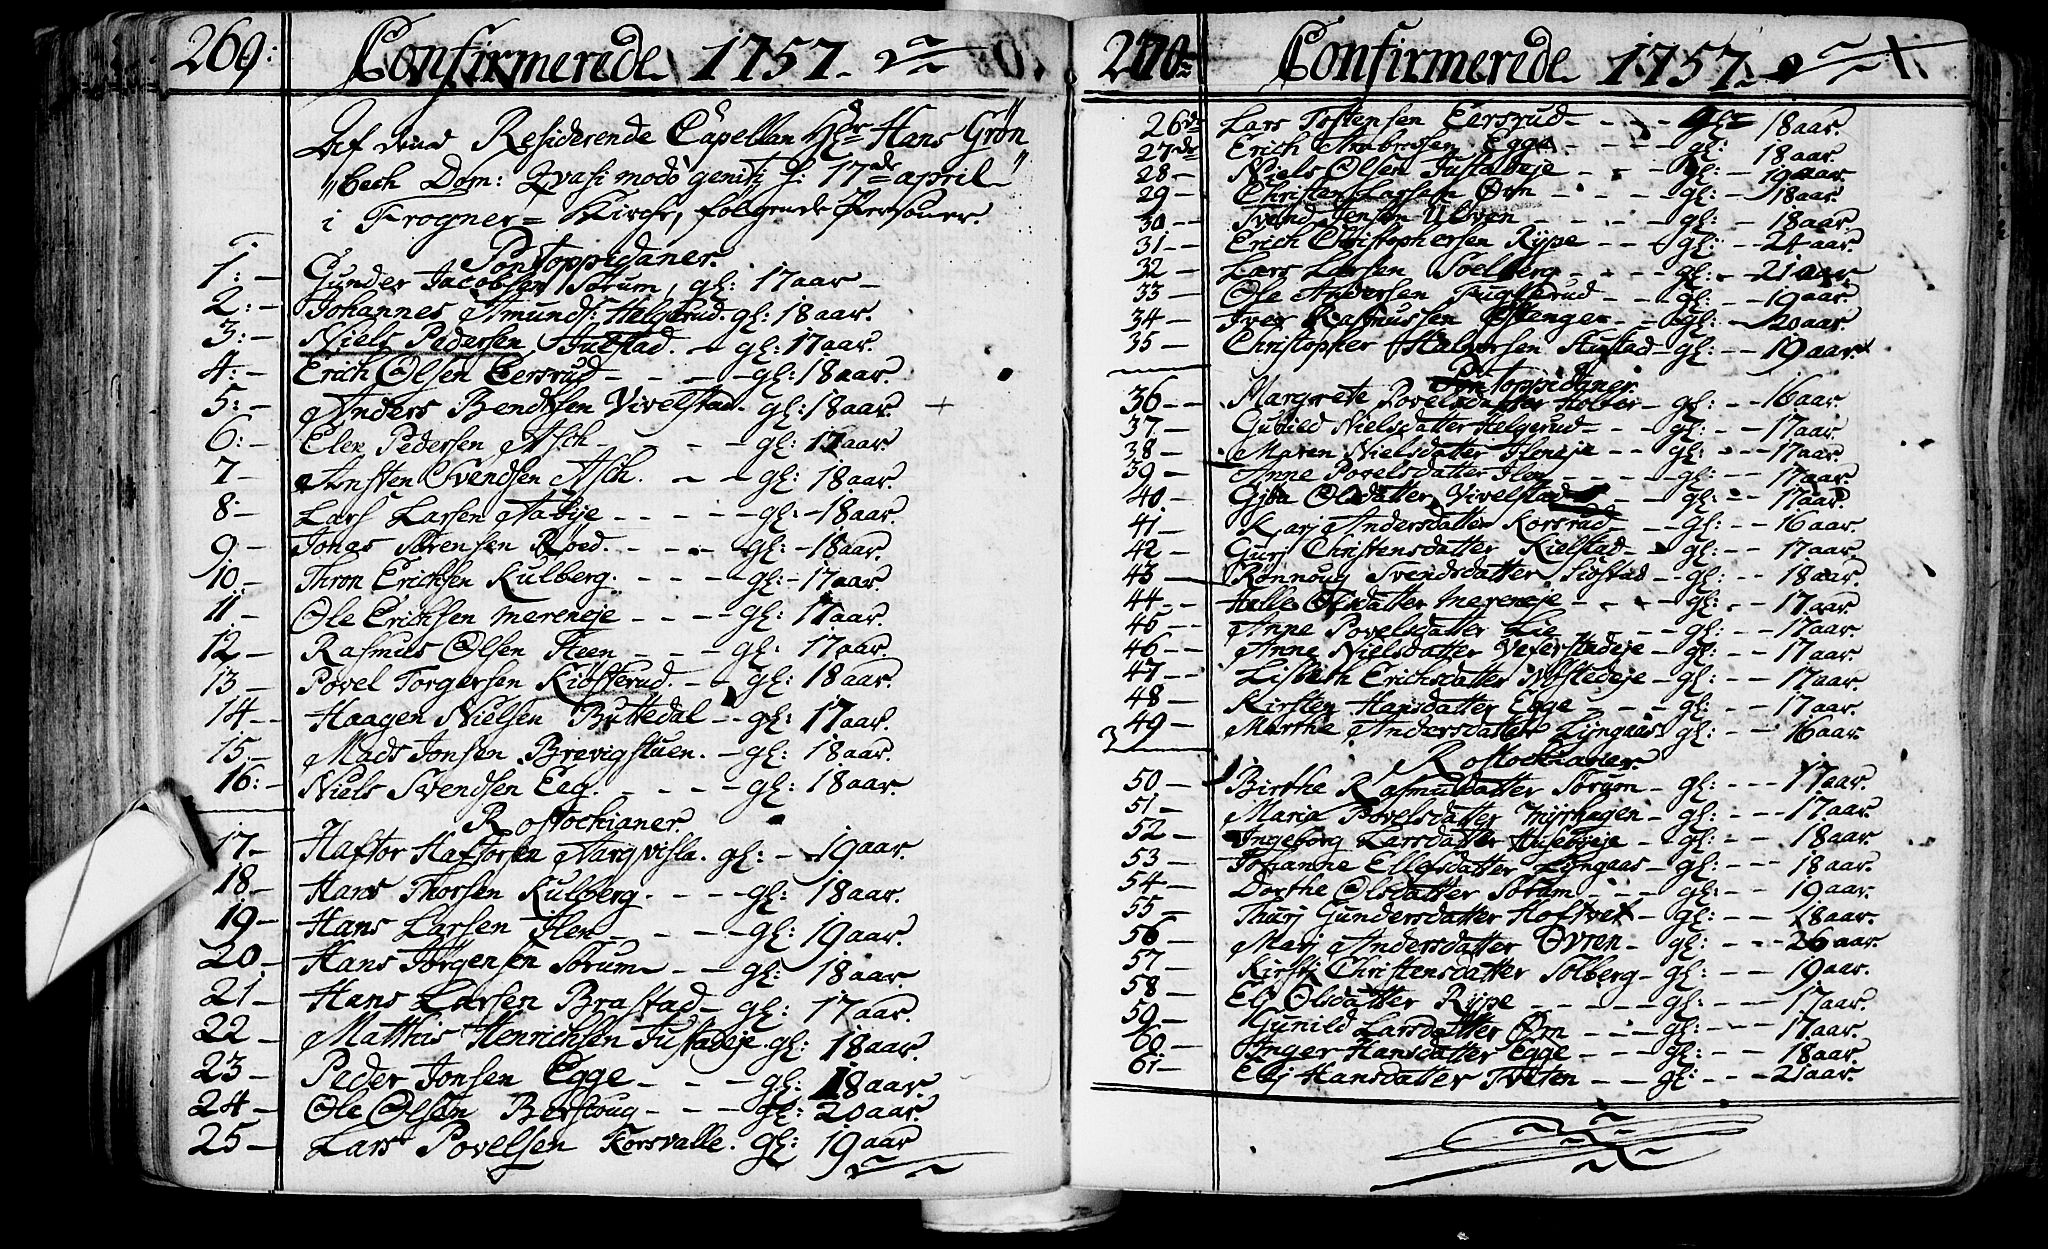 269: Confirmerede 1757
Af dend Residerende Capellan Hr Hans Grøn
bech Dom: Qvasi modo geniti J: 17de april
i Frogner Kirche, følgende Personer.
Pontoppidaner.
1: Gunder Jacobsen Sørum, gl: 17 aar
2: Johannes Amunds: Helgerud. gl: 18 aar.
3: Niels Pedersen Julstad. gl: 17 aar.
4: Erich Olsen Eersrud gl: 18 aar.
5: Anders Bendtsen Vivelstad gl: 18 aar. +
6: Elen Pedersen Asch gl: 17 aar
7 Ansten Svendsen Asch. gl: 18 aar.
8 Lars Larsen gl: 18 aar.
9 Jonas Sørensen Roed. gl: 18 aar.
10 Thron Erichsen Kulberg. gl: 17 aar
11 Ole Erichsen mereneje gl: 17 aar.
12 Rasmus Olsen Steen gl: 17 aar
13 Povel Torgersen Kiösterud gl: 18 aar.
14 Haagen Nielsen Buttedal gl: 17 aar.
15 Mads Jonsen Brevigstuen. gl: 18 aar.
16: Niels Svendsen Eeg. gl: 18 aar.
Rostochianer.
17 Haftor Haftorsen gl: 19 aar.
18 Hans Thorsen Kulberg. gl: 18 aar.
19 Hans Larsen Flen gl: 19 aar.
20 Hans Jørgensen Sørum gl: 18 aar.
21 Hans Larsen Brastad gl: 17 aar.
22 Matthis Henrichsen Justadeje gl: 18 aar.
23 Peder Jonsen Egge gl: 18 aar.
24 Ole Olsen Berstoug gl: 20 aar.
25 Lars Povelsen Forsvalle. gl: 19 aar
270 Confirmerede 1757
26de Lars Tostensen Eersrud gl: 18 aar.
27de Erich Ambrosen Egge gl: 18 aar.
28 Niels Olsen Justadeje gl: 19 aar.
29 Christen Larsen Ørn gl: 18 aar.
30 Svend Jensen Ulven gl: 18 aar.
31 Erich Christophersen Rype gl: 24 aar
32 Lars Larsen Soelberg gl: 21 aar
33 Ole Andersen Fuglerud gl: 19 aar.
34 Iver Rasmussen Østengen gl: 20 aar.
35 Christopher Halvorsen Hustad gl: 19 aar.
Pontoppidaner
36 Margrete Povelsdatter Holter gl: 16 aar.
37 Gunild Nielsdatter Helgerud gl: 17 aar.
38 Maren Nielsdatter gl: 17 aar.
39 Anne Povelsdatter gl: 17 aar.
40. Olsdatter Vivelstad gl: 17 aar
41 Karj Andersdatter Korsrud gl: 16 aar.
42 Gurj Christensdatter Kielstad gl: 17 aar.
43 Rönnoug Svendsdatter Siøstad gl: 18 aar.
44 Helle Olsdatter Mereneje gl: 17 aar
45 Anne Povelsdatter Lie gl: 17 aar.
46 Anne Nielsdatter gl: 17 aar.
47 Lisbeth Erichsdatter gl: 17 aar.
48 Kirsten Hansdatter Egge gl: 17 aar.
49 Marthe Andersdatter Lyngaas gl: 16 aar.
Rostochianer.
50 Birthe Rasmusdatter Sørum gl: 17 aar.
51 Maria Povelsdatter Myrhagen gl: 17 aar.
52 Ingeborg Larsdatter Husebyeje gl: 18 aar.
53 Johanne Ellefsdatter Lyngaas gl: 18 aar.
54 Dorthe Olsdatter Sørum gl: 19 aar.
55 Thurj Gundersdatter Hoftvet gl: 18 aar.
56 Marj Andersdatter Øvren gl: 26 aar.
57 Kirstj Christensdatter Solberg gl: 19 aar.
58 Elj Olsdatter Rype gl: 17 aar.
59 Gunild Larsdatter Ørn gl: 17 aar.
60 Inger Hansdatter Egge gl: 18 aar.
61 Elj Hansdatter Tveten gl: 21 aar.